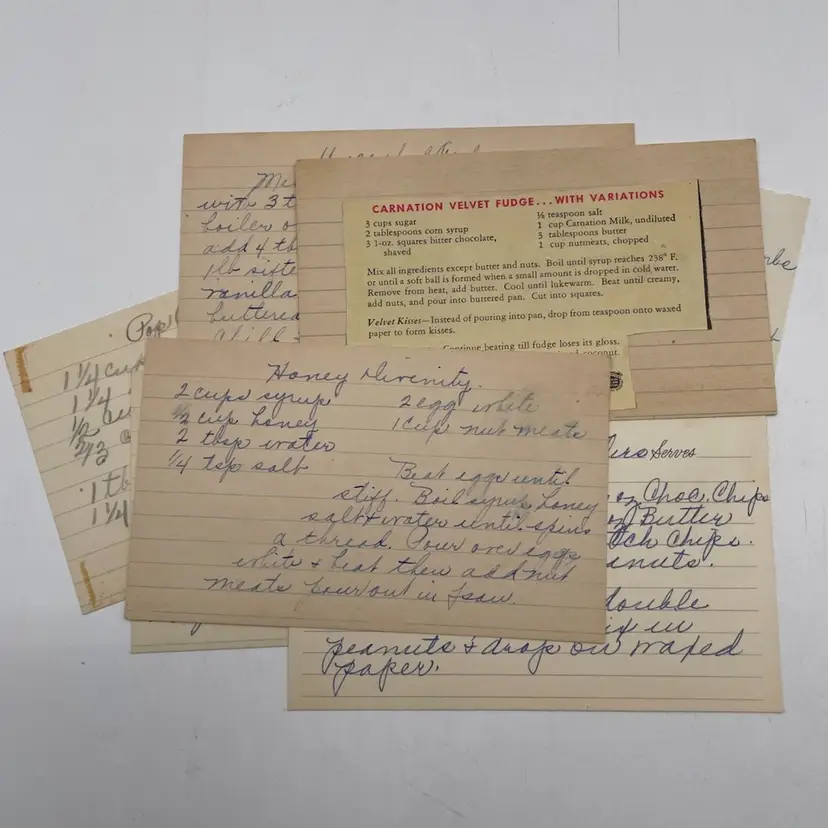 Me
with 3 t
boiler o
add 4 tb
1 lb sifte
vanilla
buttered
Chill
CARNATION VELVET FUDGE...WITH VARIATIONS
3 cups sugar
2 tablespoons corn syrup
3 1-oz. squares bitter chocolate,
shaved
½ teaspoon salt
1 cup Carnation Milk, undiluted
3 tablespoons butter
1 cup nutmeats, chopped
Mix all ingredients except butter and nuts. Boil until syrup reaches 238° F.
or until a soft ball is formed when a small amount is dropped in cold water.
Remove from heat, add butter. Cool until lukewarm. Beat until creamy,
add nuts, and pour into buttered pan. Cut into squares.
Velvet Kisses—Instead of pouring into pan, drop from teaspoon onto waxed
paper to form kisses.
Continue beating till fudge loses its gloss.
coconut.
Pop
1 1/4 cup
1 1/4
1/2 cu
2/3 c
1 tb
1 1/4
Honey Divinity.
2 cups syrup
1/2 cup honey
2 tbsp water
1/4 tsp salt
2 egg white
1 cup nut meats
Beat eggs until
stiff. Boil syrup, honey
salt & water until spins
a thread. Pour over eggs
white & beat then add nut
meats pour out in pan.
Serves
oz Choc. Chips
Butter
tch Chips.
anuts.
double
ix in
peanuts & drop on waxed
paper.